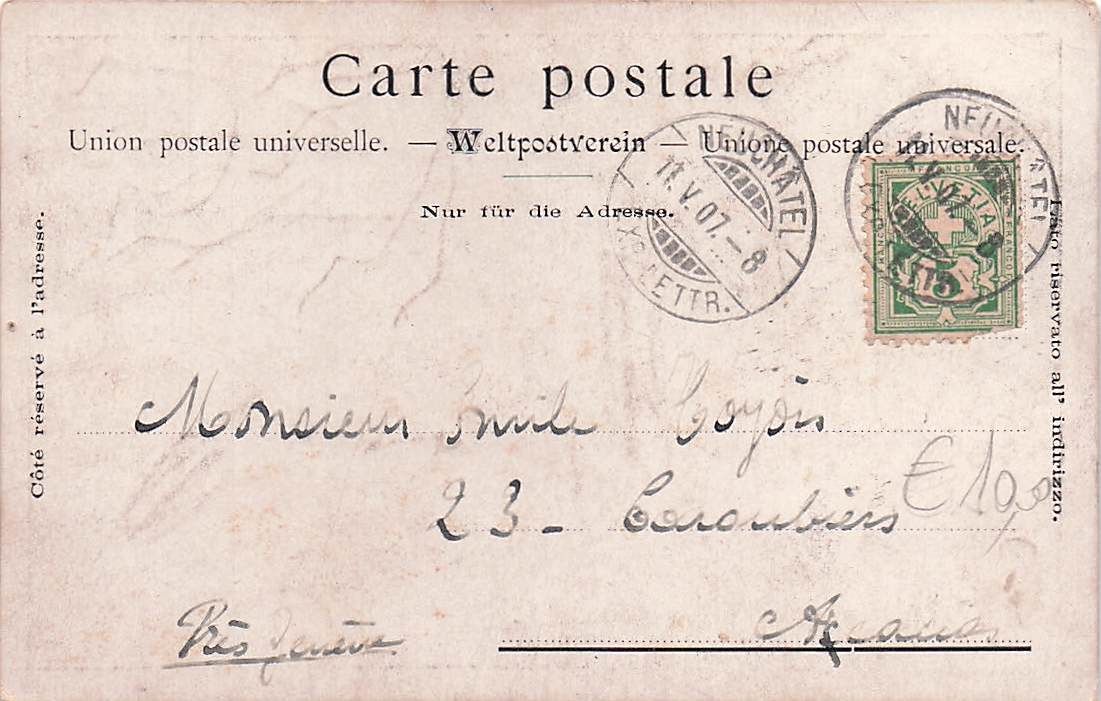 Carte postale
Union postale universelle. — Weltpostverein — Unione postale universale.
Nur für die Adresse.
Côté réservé à l'adresse.
Lato riservato all' indirizzo.
NEUCHÂTEL
11.V.07.–8
EXP. LETTR.
NEUCHÂTEL
11.V.07.–8
LETTR.
FRANCO
HELVETIA
FRANCO
FRANCO
5
Monsieur Emile
23 – Caroubiers
€ 10,00
Près Genève